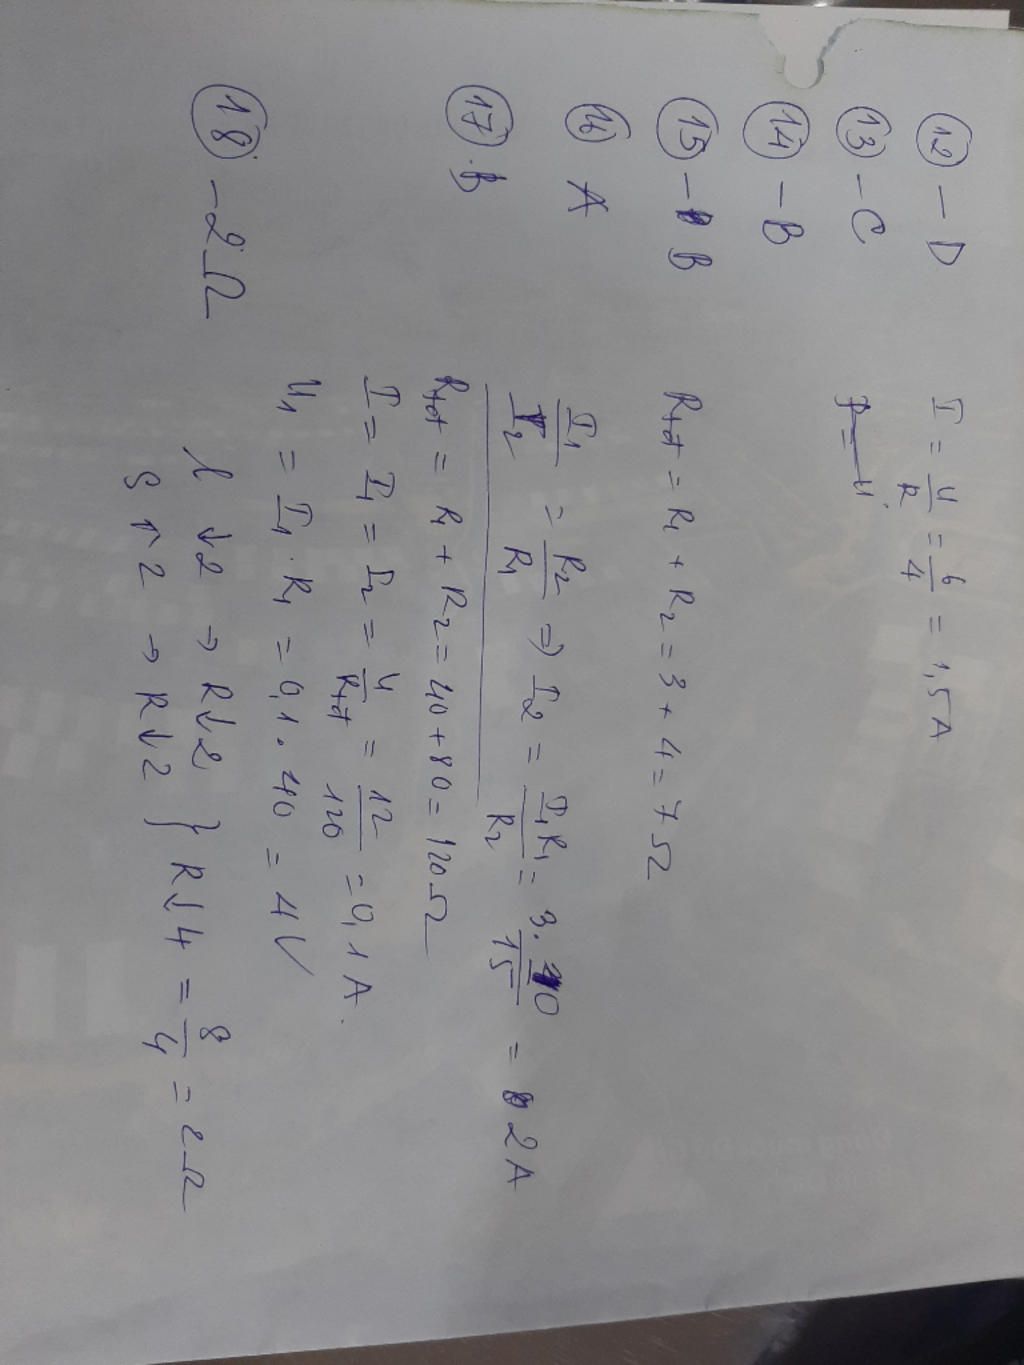 12 - D I = U/R = 6/4 = 1,5A
13 - C
14 - B
15 - B Rtđ = R1 + R2 = 3 + 4 = 7Ω
16 A I1/I2 = R2/R1 => I2 = I1R1/R2 = 3.10/15 = 2A
17. B Rtđ = R1 + R2 = 40 + 80 = 120Ω
I = I1 = I2 = U/Rtđ = 12/120 = 0,1A.
U1 = I1 . R1 = 0,1 . 40 = 4V
18 - 2Ω
l ↓2 → R↓2
S ↑2 → R↓2 } R↓4 = 8/4 = 2Ω